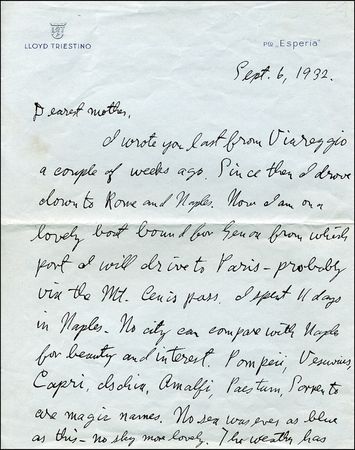 LLOYD TRIESTINO
Pfo „Esperia"
Sept. 6, 1932.
Dearest mother,
I wrote you last from Viareggio
a couple of weeks ago. Since then I drove
down to Rome and Naples. Now I am on a
lovely boat bound for Genoa from which
port I will drive to Paris - probably
via the Mt. Cenis pass. I spent 11 days
in Naples. No city can compare with Naples
for beauty and interest. Pompeii, Vesuvius,
Capri, Ischia, Amalfi, Paestum, Sorrento
are magic names. No sea was ever as blue
as this - no sky more lovely. The weather has